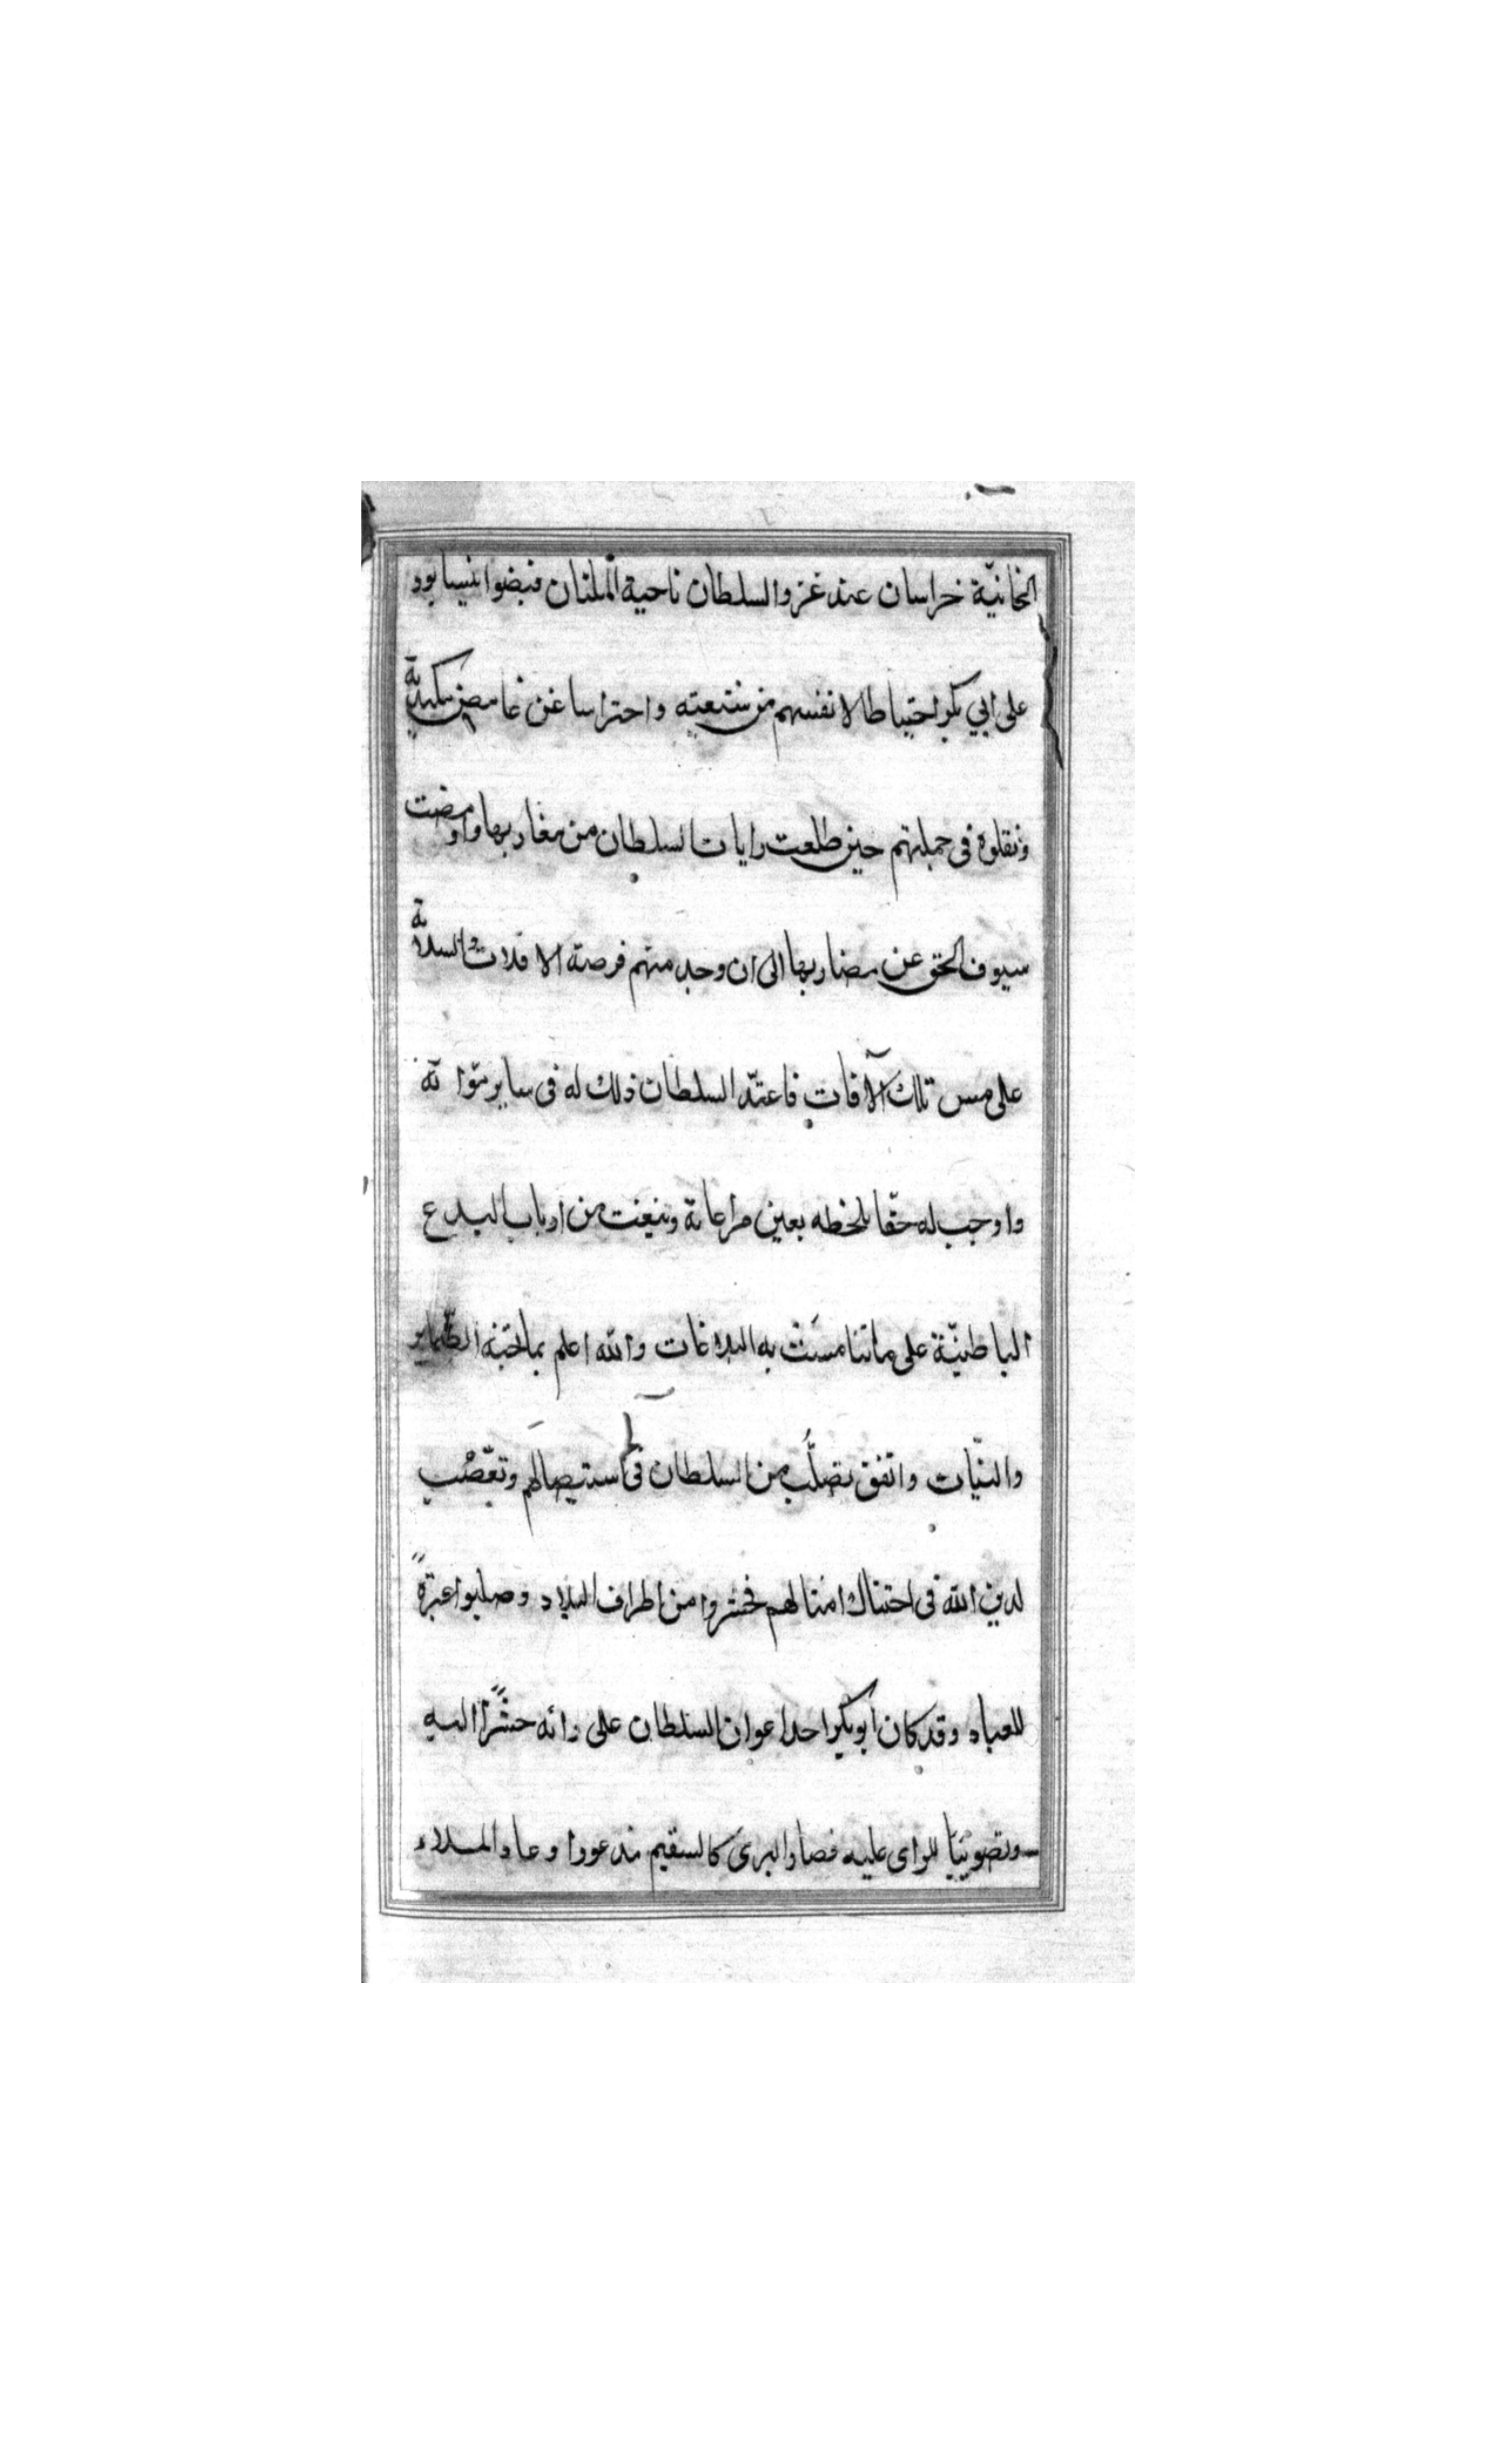 الخانيّة خراسان عند غزو السلطان ناحية الملتان فبضوا بنيسابور
على ابي بكر احتياطا لانفسهم من شيعته واحتراسا عن غامض كيدية
ونقلوه فى جملتهم حين طلعت رايات السلطان من مغاربها واومضت
سيوف الحق عن مضاربها الى ان وجد منهم فرصة الافلات والسلاة
على مس تلك الآفات فاعتدّ السلطان ذلك له فى ساير مواته
واوجب له حقا بلحظه بعين مراعاته ونبغت من ارباب البدع
الباطنيّة على ما تنامست به البلاغات والله اعلم بما تجنه الضماير
والنيّات واتفق تصلّب من السلطان فى استيصالهم وتعصّب
لدين الله فى احتناك امثالهم فحشروا من اطراف البلاد وصلبوا عبرةً
للعباد وقد كان ابو بكر احد اعوان السلطان على رائه حشرًا اليه
وتصويبًا للراى عليه فصار البرى كالسقيم مذعورا وعاد